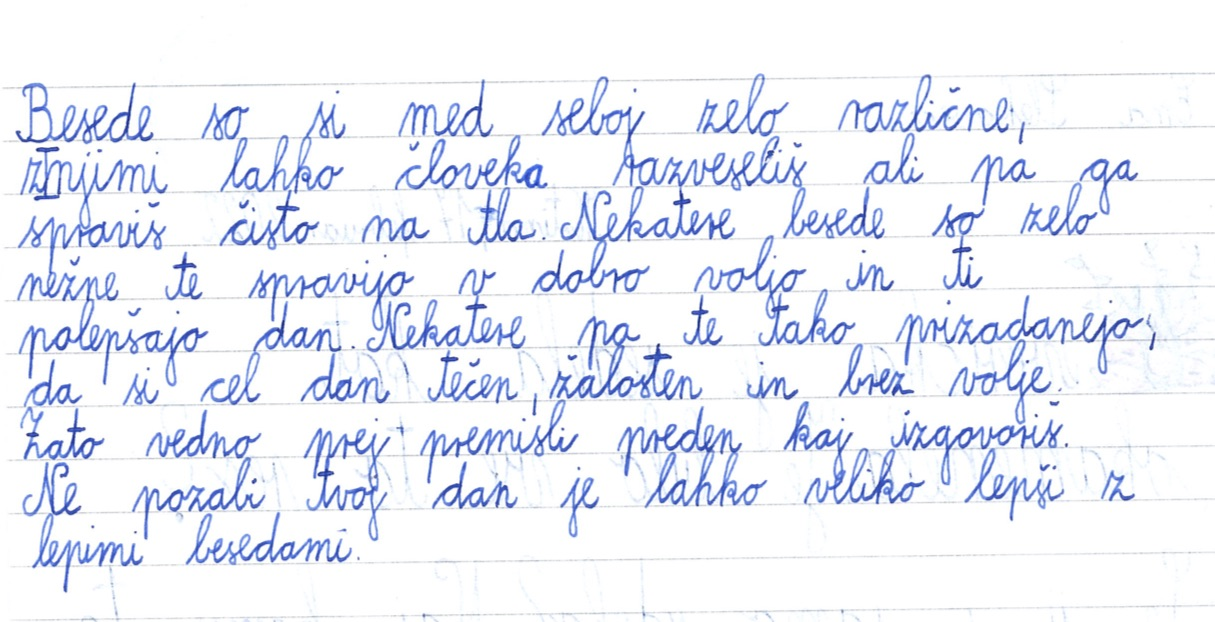 Besede so si med seboj zelo različne,
z njimi lahko človeka razveseliš ali pa ga
spraviš čisto na tla. Nekatere besede so zelo
nežne te spravijo v dobro voljo in ti
polepšajo dan. Nekatere pa te tako prizadanejo,
da si cel dan tečen, žalosten in brez volje.
Zato vedno prej premisli preden kaj izgovoriš.
Ne pozabi tvoj dan je lahko veliko lepši z
lepimi besedami.